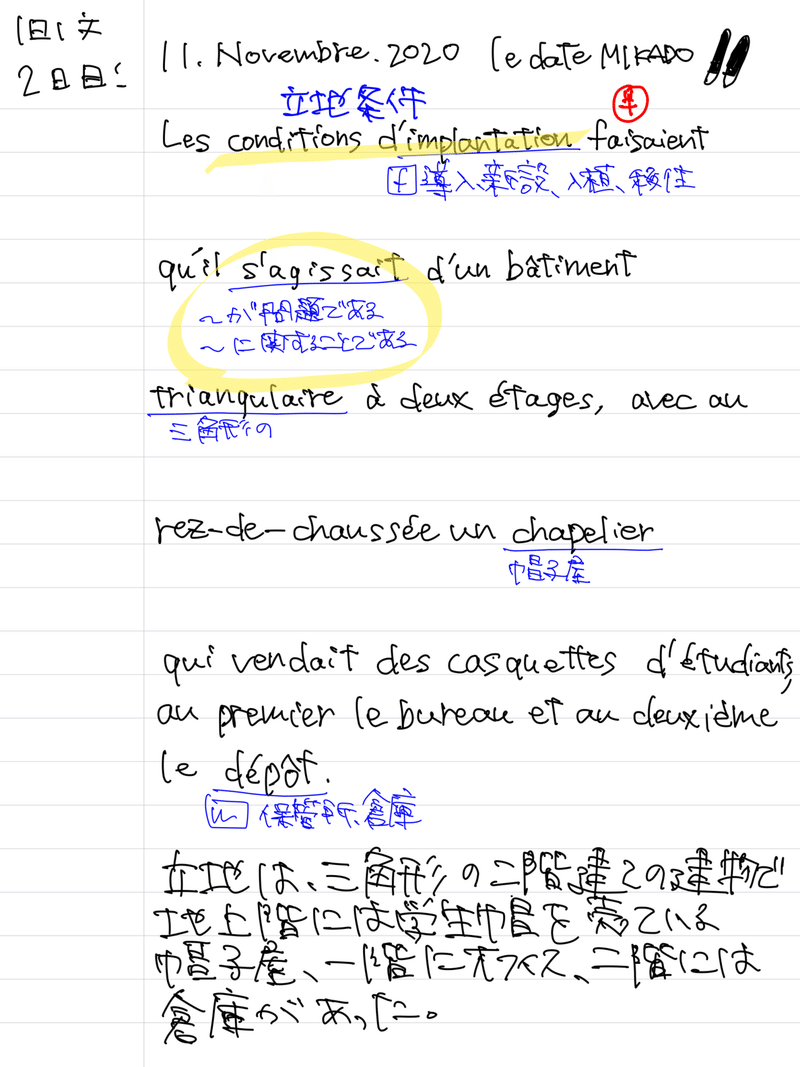 1日1文
2日目!
11. Novembre. 2020 le date MIKADO
立地条件
半
Les conditions d'implantation faisaient
f 導入、新設、入植、移住
qu'il s'agissait d'un bâtiment
～が問題である
～に関することである
triangulaire à deux étages, avec au
三角形の
rez-de-chaussée un chapelier
帽子屋
qui vendait des casquettes d'étudiants,
au premier le bureau et au deuxième
le dépôt.
m 保管所、倉庫
立地は、三角形の二階建ての建物で
地上階には学生帽を売ている
帽子屋、一階にオフィス、二階には
倉庫があった。